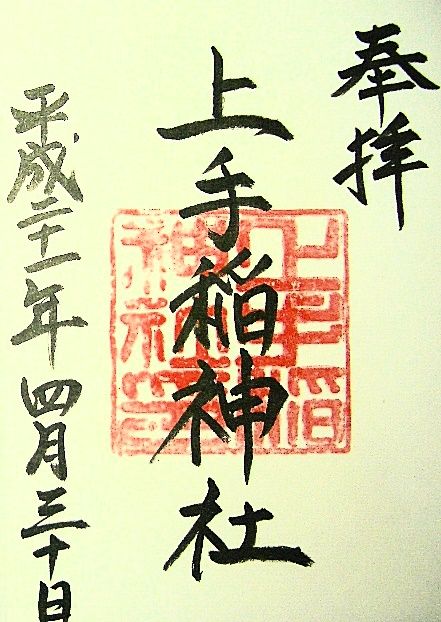 奉拝
上手稲神社
平成二十一年四月三十日